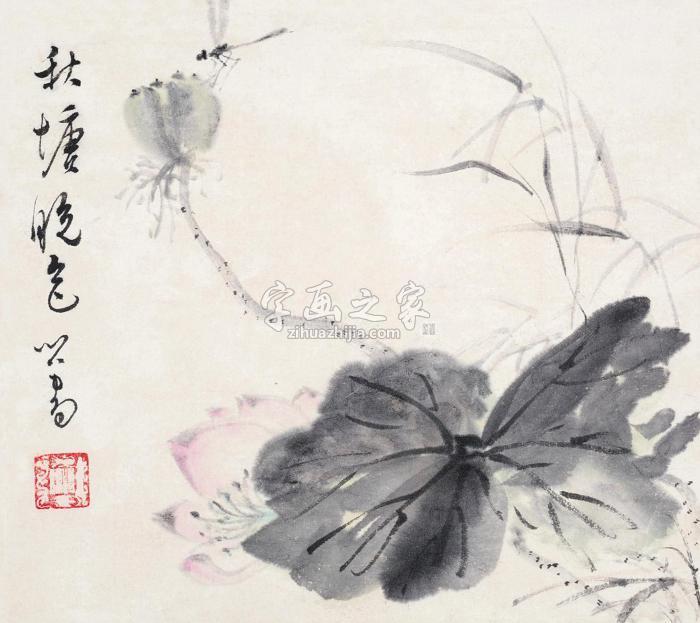 秋塘晚色 心畬
字画之家
zihuazhijia.com